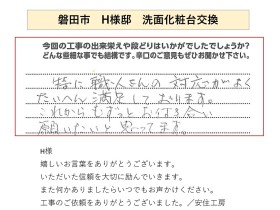 磐田市　H様邸　洗面化粧台交換
今回の工事の出来栄えや段どりはいかがでしたでしょうか?
どんな些細な事でも結構です。辛口のご意見もぜひお聞かせ下さい。
特に職人さんの対応がよく
たいへん満足しております。
これからもずっとお付き合い
願いたいと思ってます。
H様
嬉しいお言葉をありがとうございます。
いただいた信頼を大切に励んでいきます。
また何かありましたらいつでもお声かけください。
工事のご依頼をありがとうございました。／安住工房